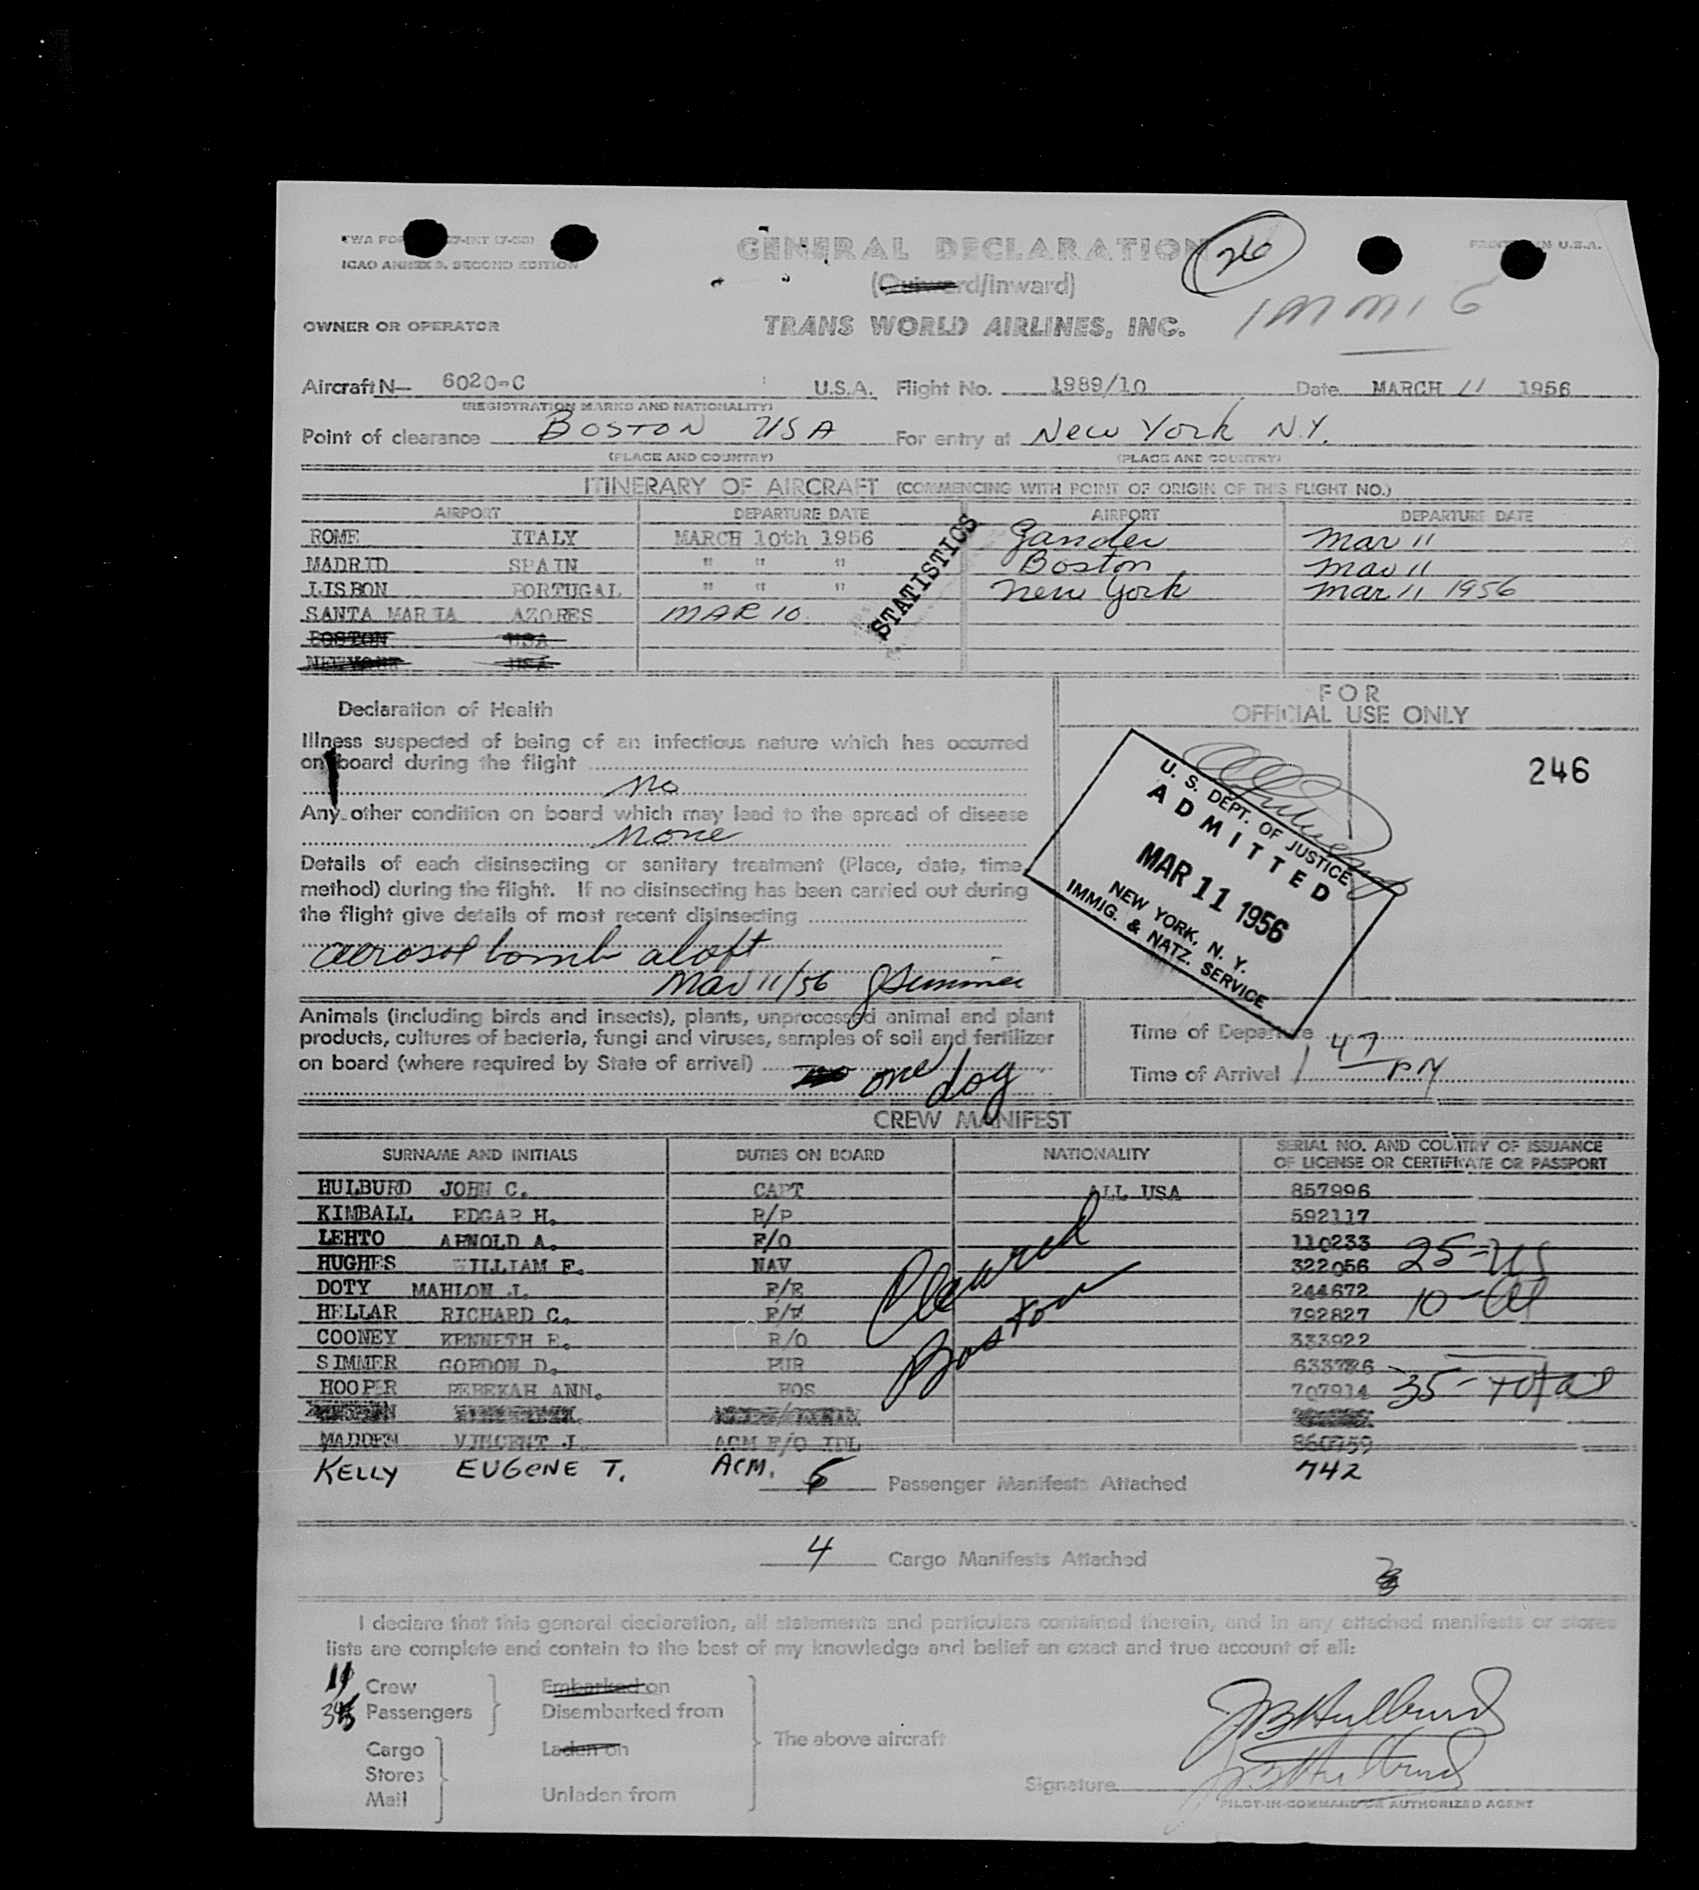 TWA FOR 7-INT (7-53)
ICAO ANNEX 9, SECOND EDITION
GENERAL DECLARATION
26
PRINTED IN U.S.A.
(Outward/Inward)
IMMIG
OWNER OR OPERATOR
TRANS WORLD AIRLINES, INC.
Aircraft N— 6020-C U.S.A. Flight No. 1989/10 Date MARCH 11 1956
(REGISTRATION MARKS AND NATIONALITY)
Point of clearance BOSTON USA For entry at New York N.Y.
(PLACE AND COUNTRY) (PLACE AND COUNTRY)
ITINERARY OF AIRCRAFT (COMMENCING WITH POINT OF ORIGIN OF THIS FLIGHT NO.)
AIRPORT DEPARTURE DATE AIRPORT DEPARTURE DATE
ROME ITALY MARCH 10th 1956 Gander Mar 11
MADRID SPAIN " " " Boston Mar 11
LISBON PORTUGAL " " " New York Mar 11 1956
SANTA MARIA AZORES MAR 10
BOSTON USA
NEW YORK USA
STATISTICS
Declaration of Health
FOR
OFFICIAL USE ONLY
Illness suspected of being of an infectious nature which has occurred
on board during the flight
no
246
Any other condition on board which may lead to the spread of disease
none
Details of each disinsecting or sanitary treatment (Place, date, time,
method) during the flight. If no disinsecting has been carried out during
the flight give details of most recent disinsecting
aerosol bomb aloft
Mar 11/56 GSimmer
U. S. DEPT. OF JUSTICE
ADMITTED
MAR 11 1956
NEW YORK, N. Y.
IMMIG. & NATZ. SERVICE
Animals (including birds and insects), plants, unprocessed animal and plant
products, cultures of bacteria, fungi and viruses, samples of soil and fertilizer
on board (where required by State of arrival)
one dog
Time of Departure
Time of Arrival 1 47 PM
CREW MANIFEST
SURNAME AND INITIALS DUTIES ON BOARD NATIONALITY SERIAL NO. AND COUNTRY OF ISSUANCE
OF LICENSE OR CERTIFICATE OR PASSPORT
HULBURD JOHN C. CAPT ALL USA 857996
KIMBALL EDGAR H. R/P 592117
LEHTO ARNOLD A. F/O 110233
HUGHES WILLIAM F. NAV 322056
DOTY MAHLON J. F/E 244672
HELLAR RICHARD C. F/E 792827
COONEY KENNETH E. R/O 333922
SIMMER GORDON D. PUR 633786
HOOPER REBEKAH ANN. HOS 707914
MADDEN VINCENT J. ACM F/O IDL 860759
KELLY EUGENE T. ACM. 742
Cleared
Boston
25-US
10-Al
35-total
Passenger Manifests Attached
4 Cargo Manifests Attached
I declare that this general declaration, all statements and particulars contained therein, and in any attached manifests or stores
lists are complete and contain to the best of my knowledge and belief an exact and true account of all:
11 Crew
Passengers
Cargo
Stores
Mail
Embarked on
Disembarked from
Laden on
Unladen from
The above aircraft
Signature
PILOT-IN-COMMAND OR AUTHORIZED AGENT